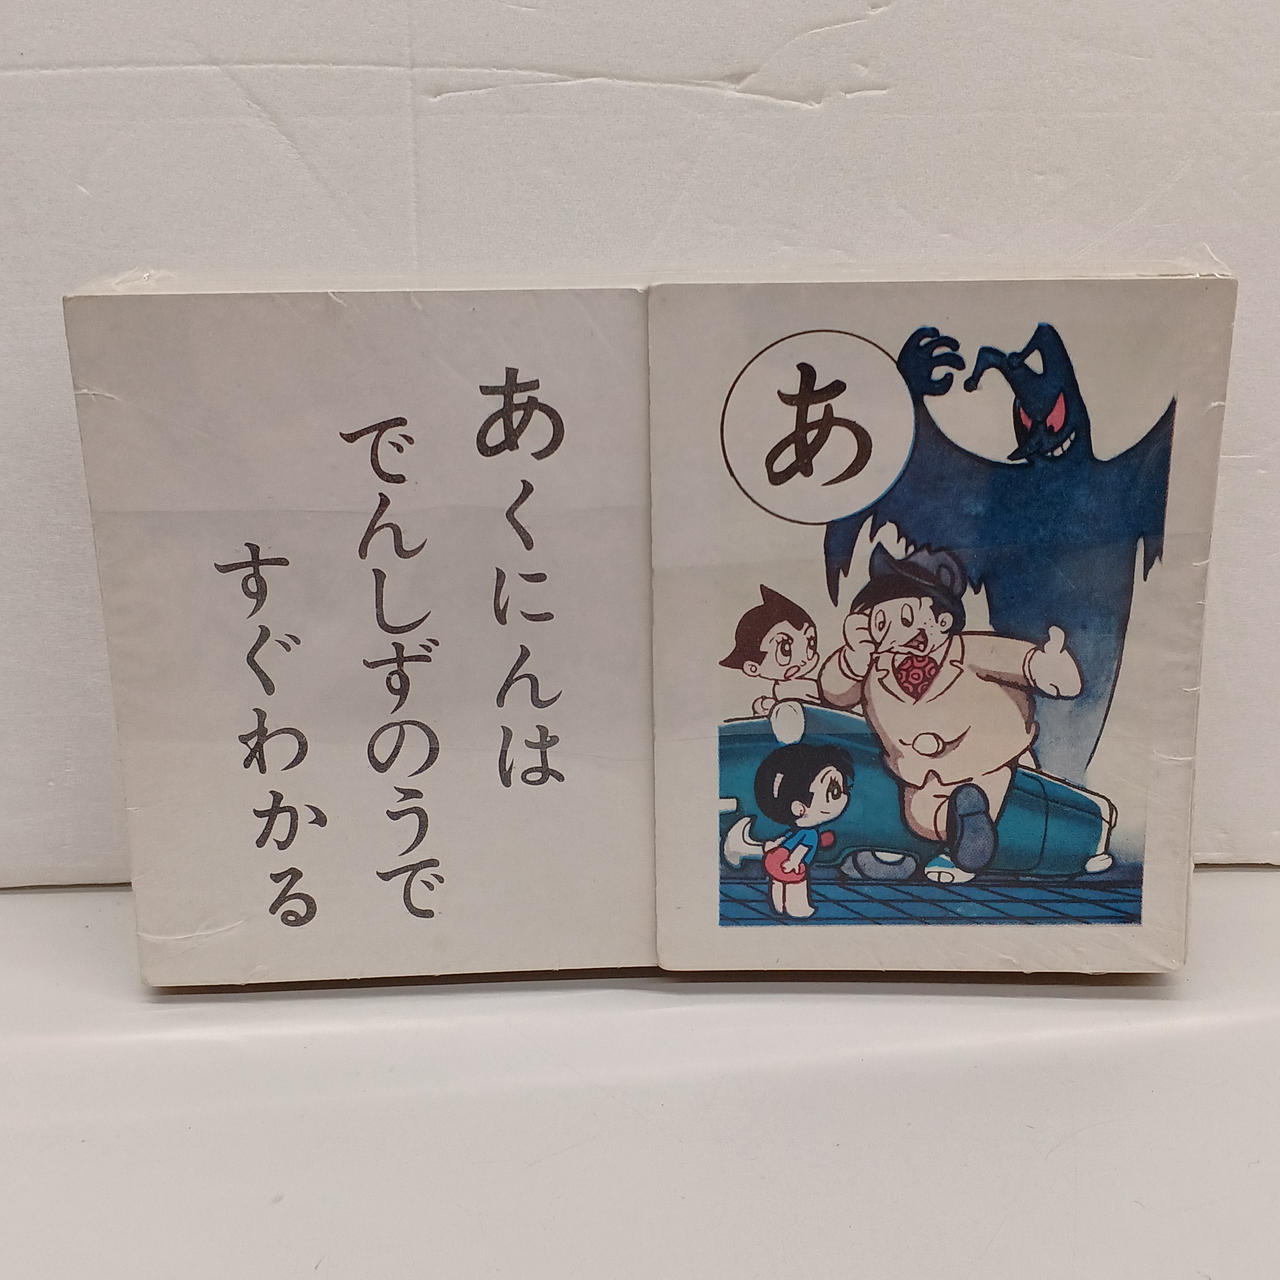 あくにんは
でんしずのうで
すぐわかる
あ